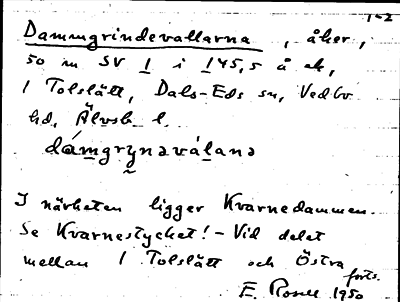 1-2
Dammgrindevallarna , åker,
50 m SV 1 i 145,5 å ek,
1 Tolslätt, Dals-Eds sn, Vedbo
hd, Älvsb l.
dámgrynəváḷanə
I närheten ligger Kvarnedammen.
Se Kvarnestycket! - Vid delet
mellan 1 Tolslätt och Östra
forts.
E. Rosell 1950